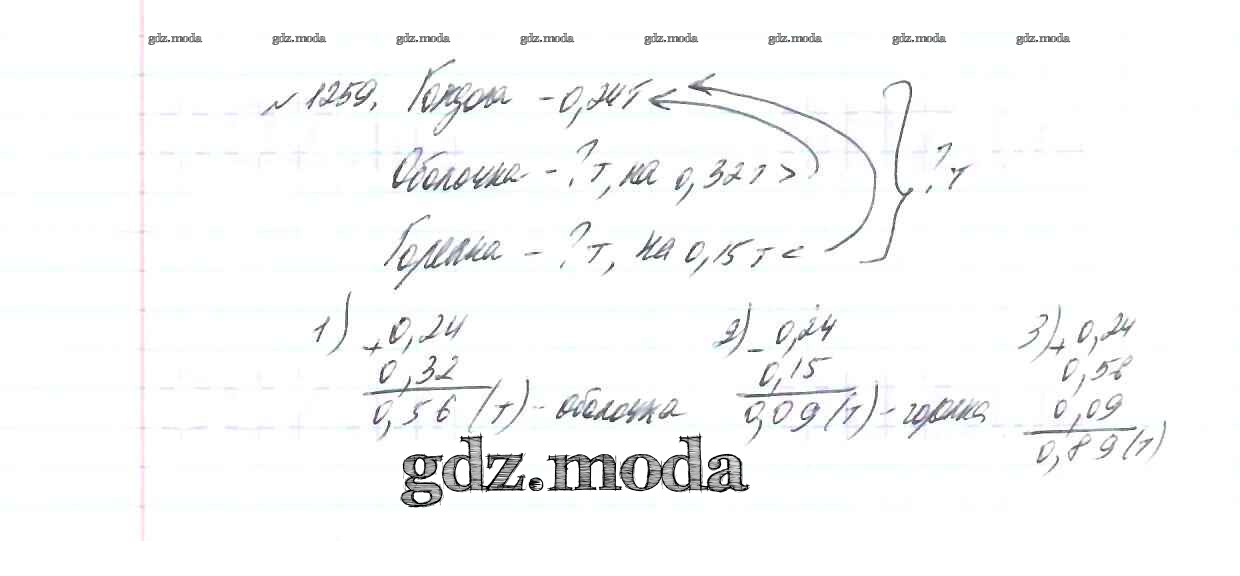 gdz.moda gdz.moda gdz.moda gdz.moda gdz.moda gdz.moda gdz.moda gdz.moda
№1259. Гондола - 0,24т
Оболочка - ? т, на 0,32т >
Горелка - ? т, на 0,15т <
? т
1) + 0,24
0,32
0,56 (т) - оболочка
2) - 0,24
0,15
0,09 (т) - горелка
3) + 0,24
0,56
0,09
0,89 (т)
gdz.moda